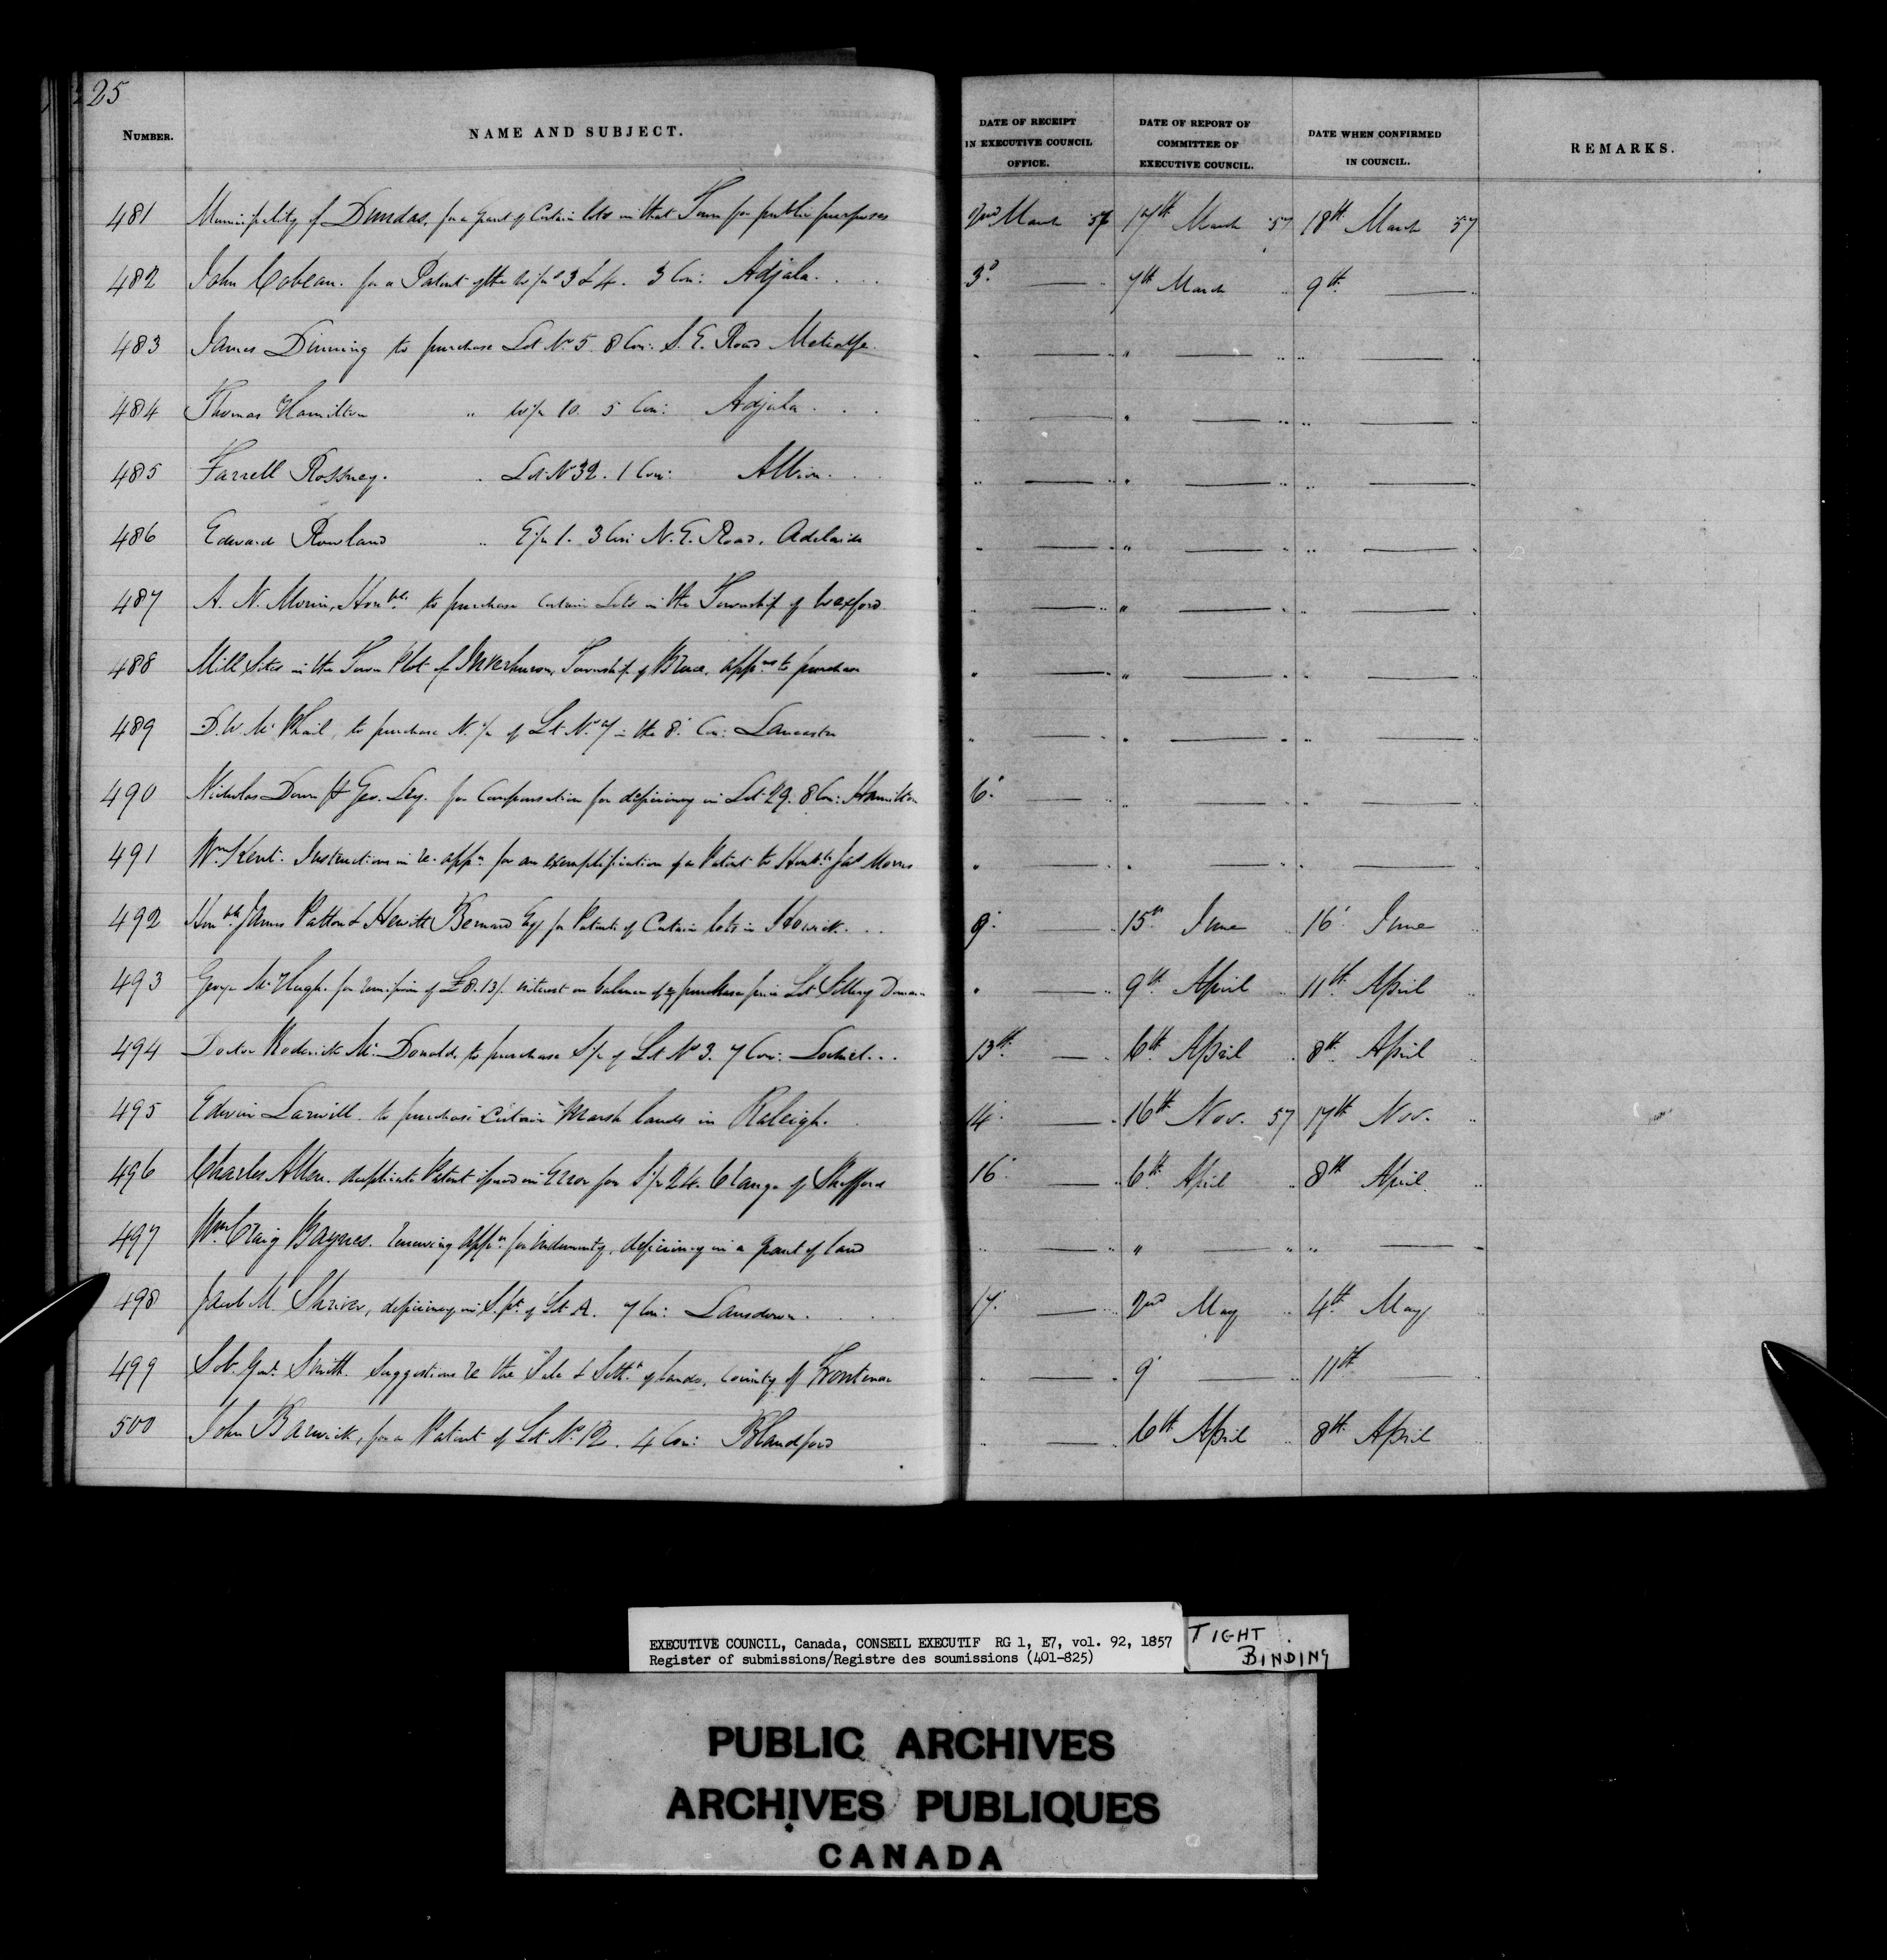 25
NUMBER. NAME AND SUBJECT. DATE OF RECEIPT IN EXECUTIVE COUNCIL OFFICE. DATE OF REPORT OF COMMITTEE OF EXECUTIVE COUNCIL. DATE WHEN CONFIRMED IN COUNCIL. REMARKS.
481 Municipality of Dundas, for a grant of Certain lots in that Town for public purposes 2nd March 57 17th March 57 18th March 57
482 John Cobean. for a Patent of the W/½ 3 & 4. 3 Con: Adjala. . . 3d — " 7th March " 9th — "
483 James Dinning to purchase Lot No 5. 8 Con: S. E. Road Metcalfe. " — " " — " " — "
484 Thomas Hamilton " W/½ 10. 5 Con: Adjala . . . " — " " — " " — "
485 Farrell Rossney. " Lot No 32. 1 Con: Albion. . . " — " " — " " — "
486 Edward Rowland " E/½ 1. 3 Con N. E. Road. Adelaide " — " " — " " — "
487 A. N. Morin, Honble to purchase certain Lots in the Township of Wexford " — " " — " " — "
488 Mill Sites in the Town Plot of Inverhuron, Township of Bruce. appns to purchase " — " " — " " — "
489 D. W. Mc Phail, to purchase N. ½ of Lt. No 7 in the 8' Con: Lancaster " — " " — " " — "
490 Nicholas Down & Geo. Ley. for Compensation for deficiency in Lot 29. 8 Con: Hamilton 6' — " " — " " — "
491 Wm Kent. Instructions in re. appn for an exemplification of a Patent to Honble Jas Morris " — " " — " " — "
492 Honble James Patton & Hewitt Bernard Esq for Patents of Certain lots in Howick. . . 9' — " 15th June " 16' June "
493 George Mc Hugh. for remission of £8.13/. interest on balance of purchase price Lot Sillery Domain " — " 9th April " 11th April "
494 Doctor Roderick Mc Donald, to purchase S/½ of Lt No 3. 7 Con: Lochiel. . . 13th — " 6th April " 8th April "
495 Edwin Larwill to purchase certain Marsh lands in Raleigh. . 14' — " 16th Nov. 57 17th Nov. "
496 Charles Allen. duplicate Patent issued in Error for S/½ 24. 6 range of Shefford 16' — " 6th April " 8th April "
497 Wm Craig Baynes. renewing appn for indemnity, deficiency in a grant of land " — " " — " " — "
498 Jacob M. Shriver, deficiency in S. pt of Lt A. 7 Con: Lansdown. . . . 17' — " 2nd May " 4th May "
499 Smith. Suggestions re the Sale & Settt of lands, County of Frontenac " — " 9' — " 11th — "
500 John Barwick, for a Patent of Lot No 12. 4 Con: Blandford " — " 6th April " 8th April "
EXECUTIVE COUNCIL, Canada, CONSEIL EXECUTIF RG 1, E7, vol. 92, 1857
Register of submissions/Registre des soumissions (401-825)
TIGHT BINDING
PUBLIC ARCHIVES
ARCHIVES PUBLIQUES
CANADA